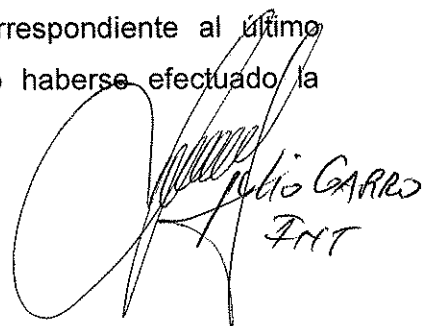 rrespondiente al último
o haberse efectuado la
Julio GARRO
INT